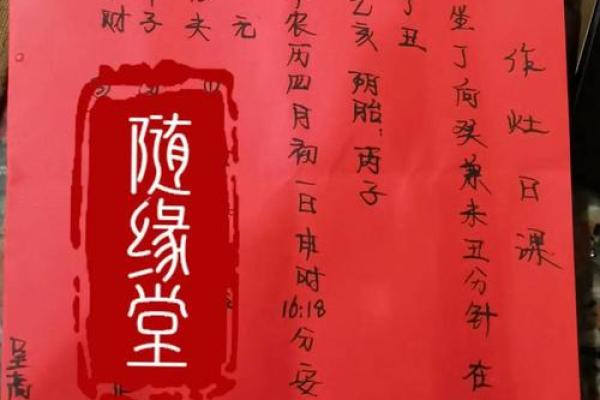 作灶日课
坐丁向癸兼未丑分针 在
丁丑
乙亥 阴胎:丙子
农历四月初一日申时16:18分安
元
夫
子
财
随缘堂